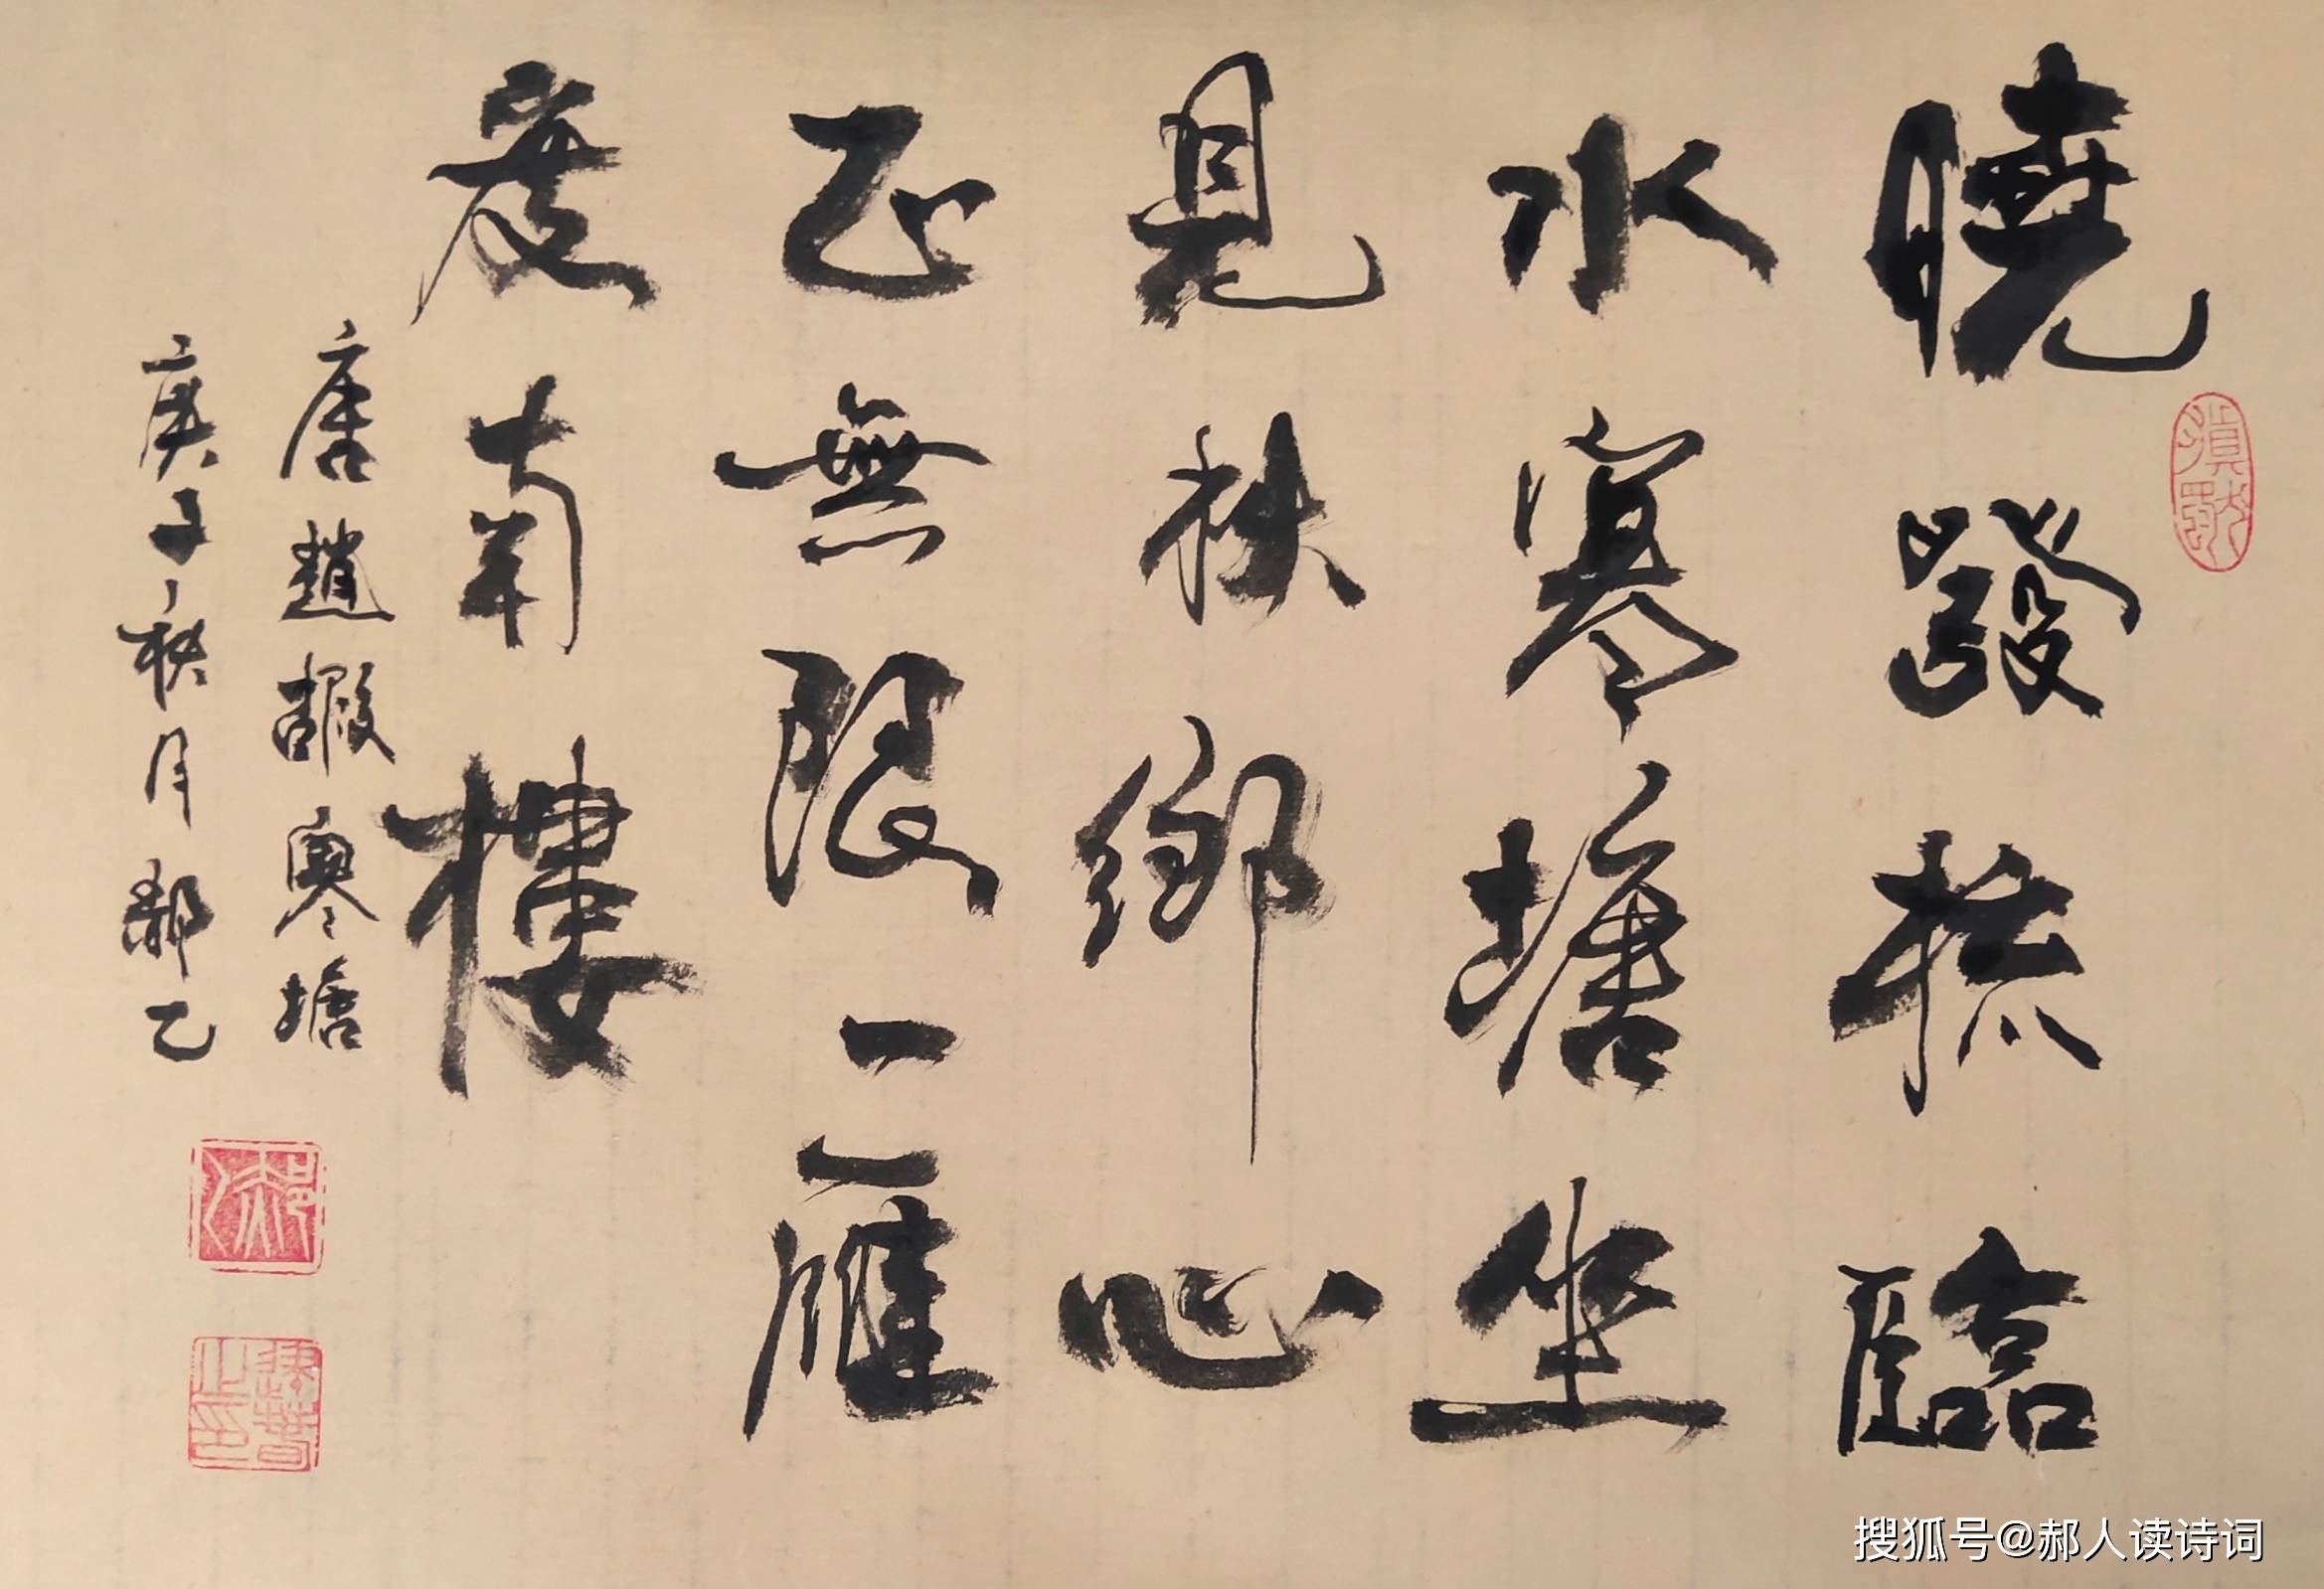 曉發梳臨
水寒塘坐
見秋鄉心
正無限一雁
度南樓
唐趙嘏寒塘
庚子秋月郝乙
搜狐号@郝人读诗词